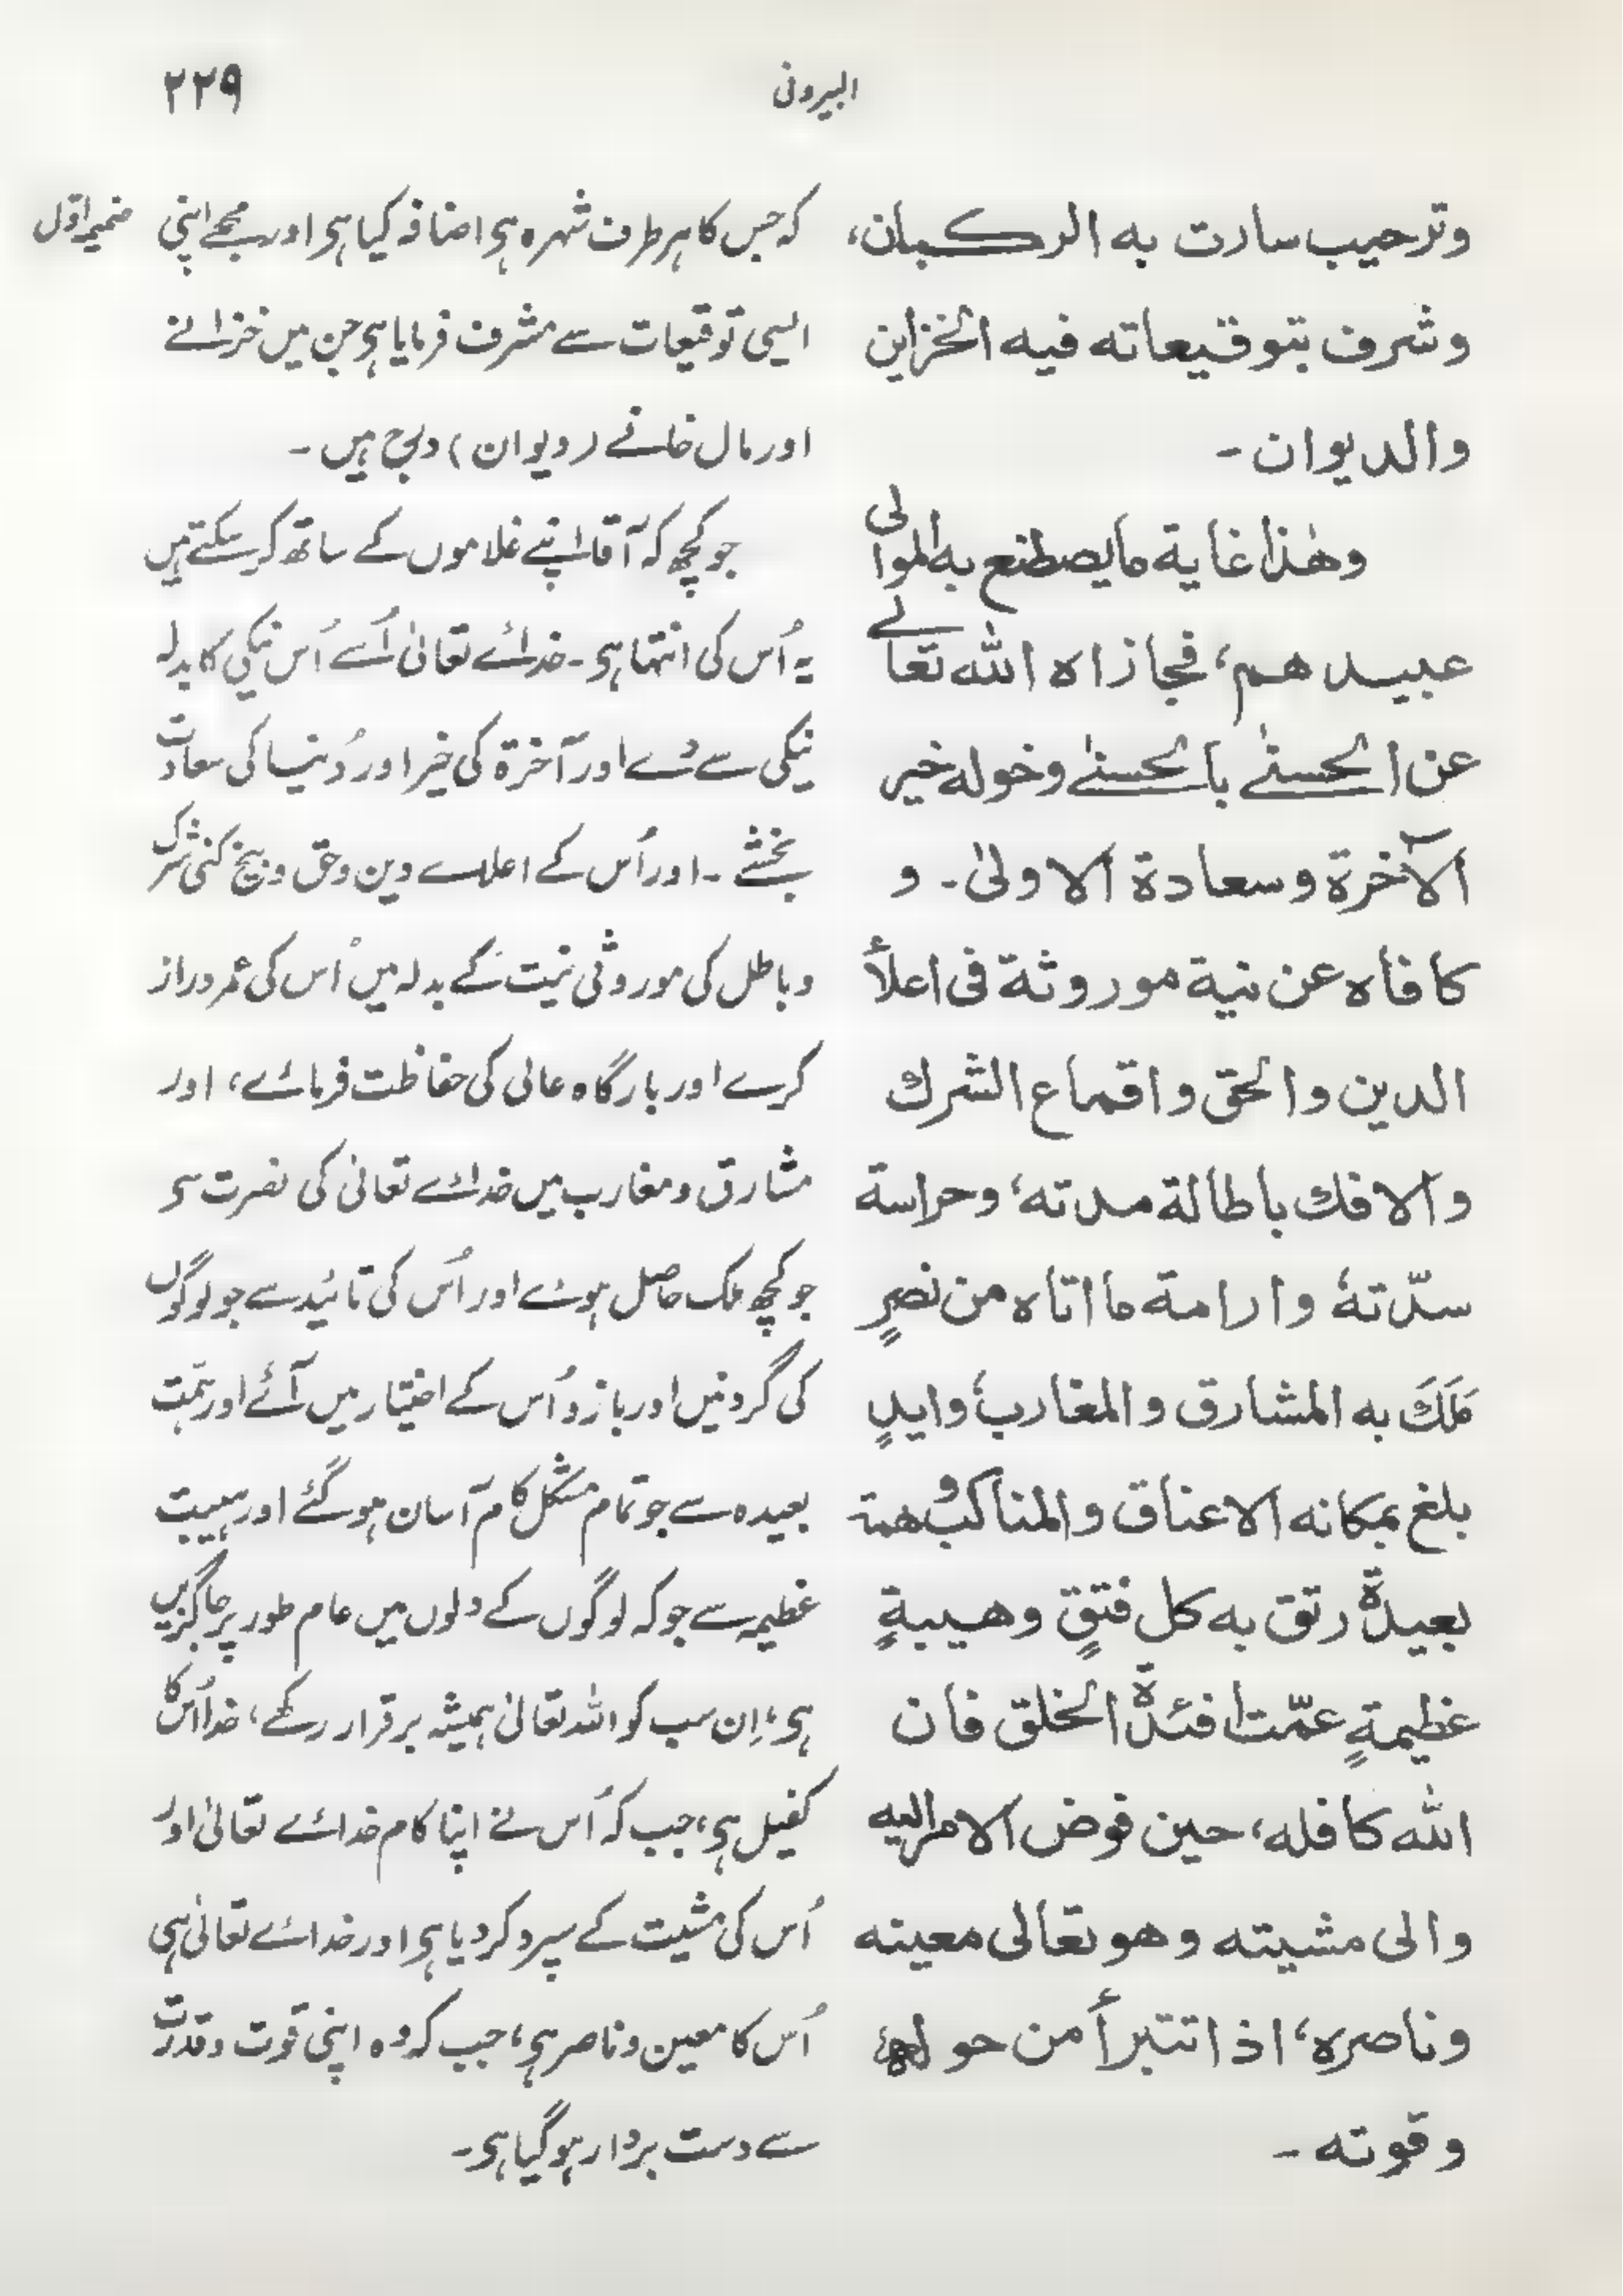 البیرونی
۲۲۹
ضمیمہ اوّل
وترحیب سارت به الرکبان،
وشرف بتوقیعاته فیه الخزاین
والدیوان -
وهٰذا غایة مایصطنع به الموالی
عبیدهم، فجازاه الله تعالے
عن الحسنٰے بالحسنٰے وخوله خیر
الآخرة وسعادة الاولیٰ - و
کافأه عن نیة موروثة فی اعلأ
الدین والحق واقماع الشرك
والافك باطالة مدته، وحراسة
سدّتهٗ وارامة ما اتاه من نصرٍ
مَلَكَ به المشارق والمغارب، وایدٍ
بلغ بمکانه الاعناق والمناکب، وهمة
بعیدةٍ رتق به کل فتقٍ وهیبةٍ
عظیمةٍ عمّت افئدة الخلق فان
الله کافله، حین فوض الامر الیه
والی مشیته وهو تعالی معینه
وناصره، اذا تتبرأ من حوله
وقوته -
کہ جس کا ہر طرف شہرہ ہی اضافہ کیا ہی اور مجھے اپنی
ایسی توقیعات سے مشرف فرمایا ہی جن میں خزانے
اور مال خانے (دیوان) درج ہیں -
جو کچھ کہ آقا اپنے غلاموں کے ساتھ کر سکتے ہیں
یہ اُس کی انتہا ہی - خدائے تعالیٰ اُسے اُس نیکی کا بدلہ
نیکی سے دے اور آخرۃ کی خیر اور دُنیا کی سعادت
بخشے - اور اُس کے اعلاے دین وحق و بیخ کنی شرک
و باطل کی موروثی نیت کے بدلہ میں اُس کی عمر دراز
کرے اور بارگاہ عالی کی حفاظت فرمائے، اور
مشارق و مغارب میں خدائے تعالیٰ کی نصرت سی
جو کچھ ملک حاصل ہوئے اور اُس کی تائید سے جو لوگوں
کی گردنیں اور بازو اُس کے اختیار میں آئے اور ہمّت
بعیدہ سے جو تمام مشکل کام آسان ہوگئے اور ہیبت
عظیمہ سے جو کہ لوگوں کے دلوں میں عام طور پر جاگزیں
ہی، اِن سب کو اللہ تعالیٰ ہمیشہ برقرار رکھے، خدا اُس کا
کفیل ہی، جب کہ اُس نے اپنا کام خدائے تعالیٰ اور
اُس کی مشیت کے سپرد کر دیا ہی اور خدائے تعالیٰ ہی
اُس کا معین و ناصر ہی، جب کہ وہ اپنی قوت و قدرت
سے دست بردار ہوگیا ہی -